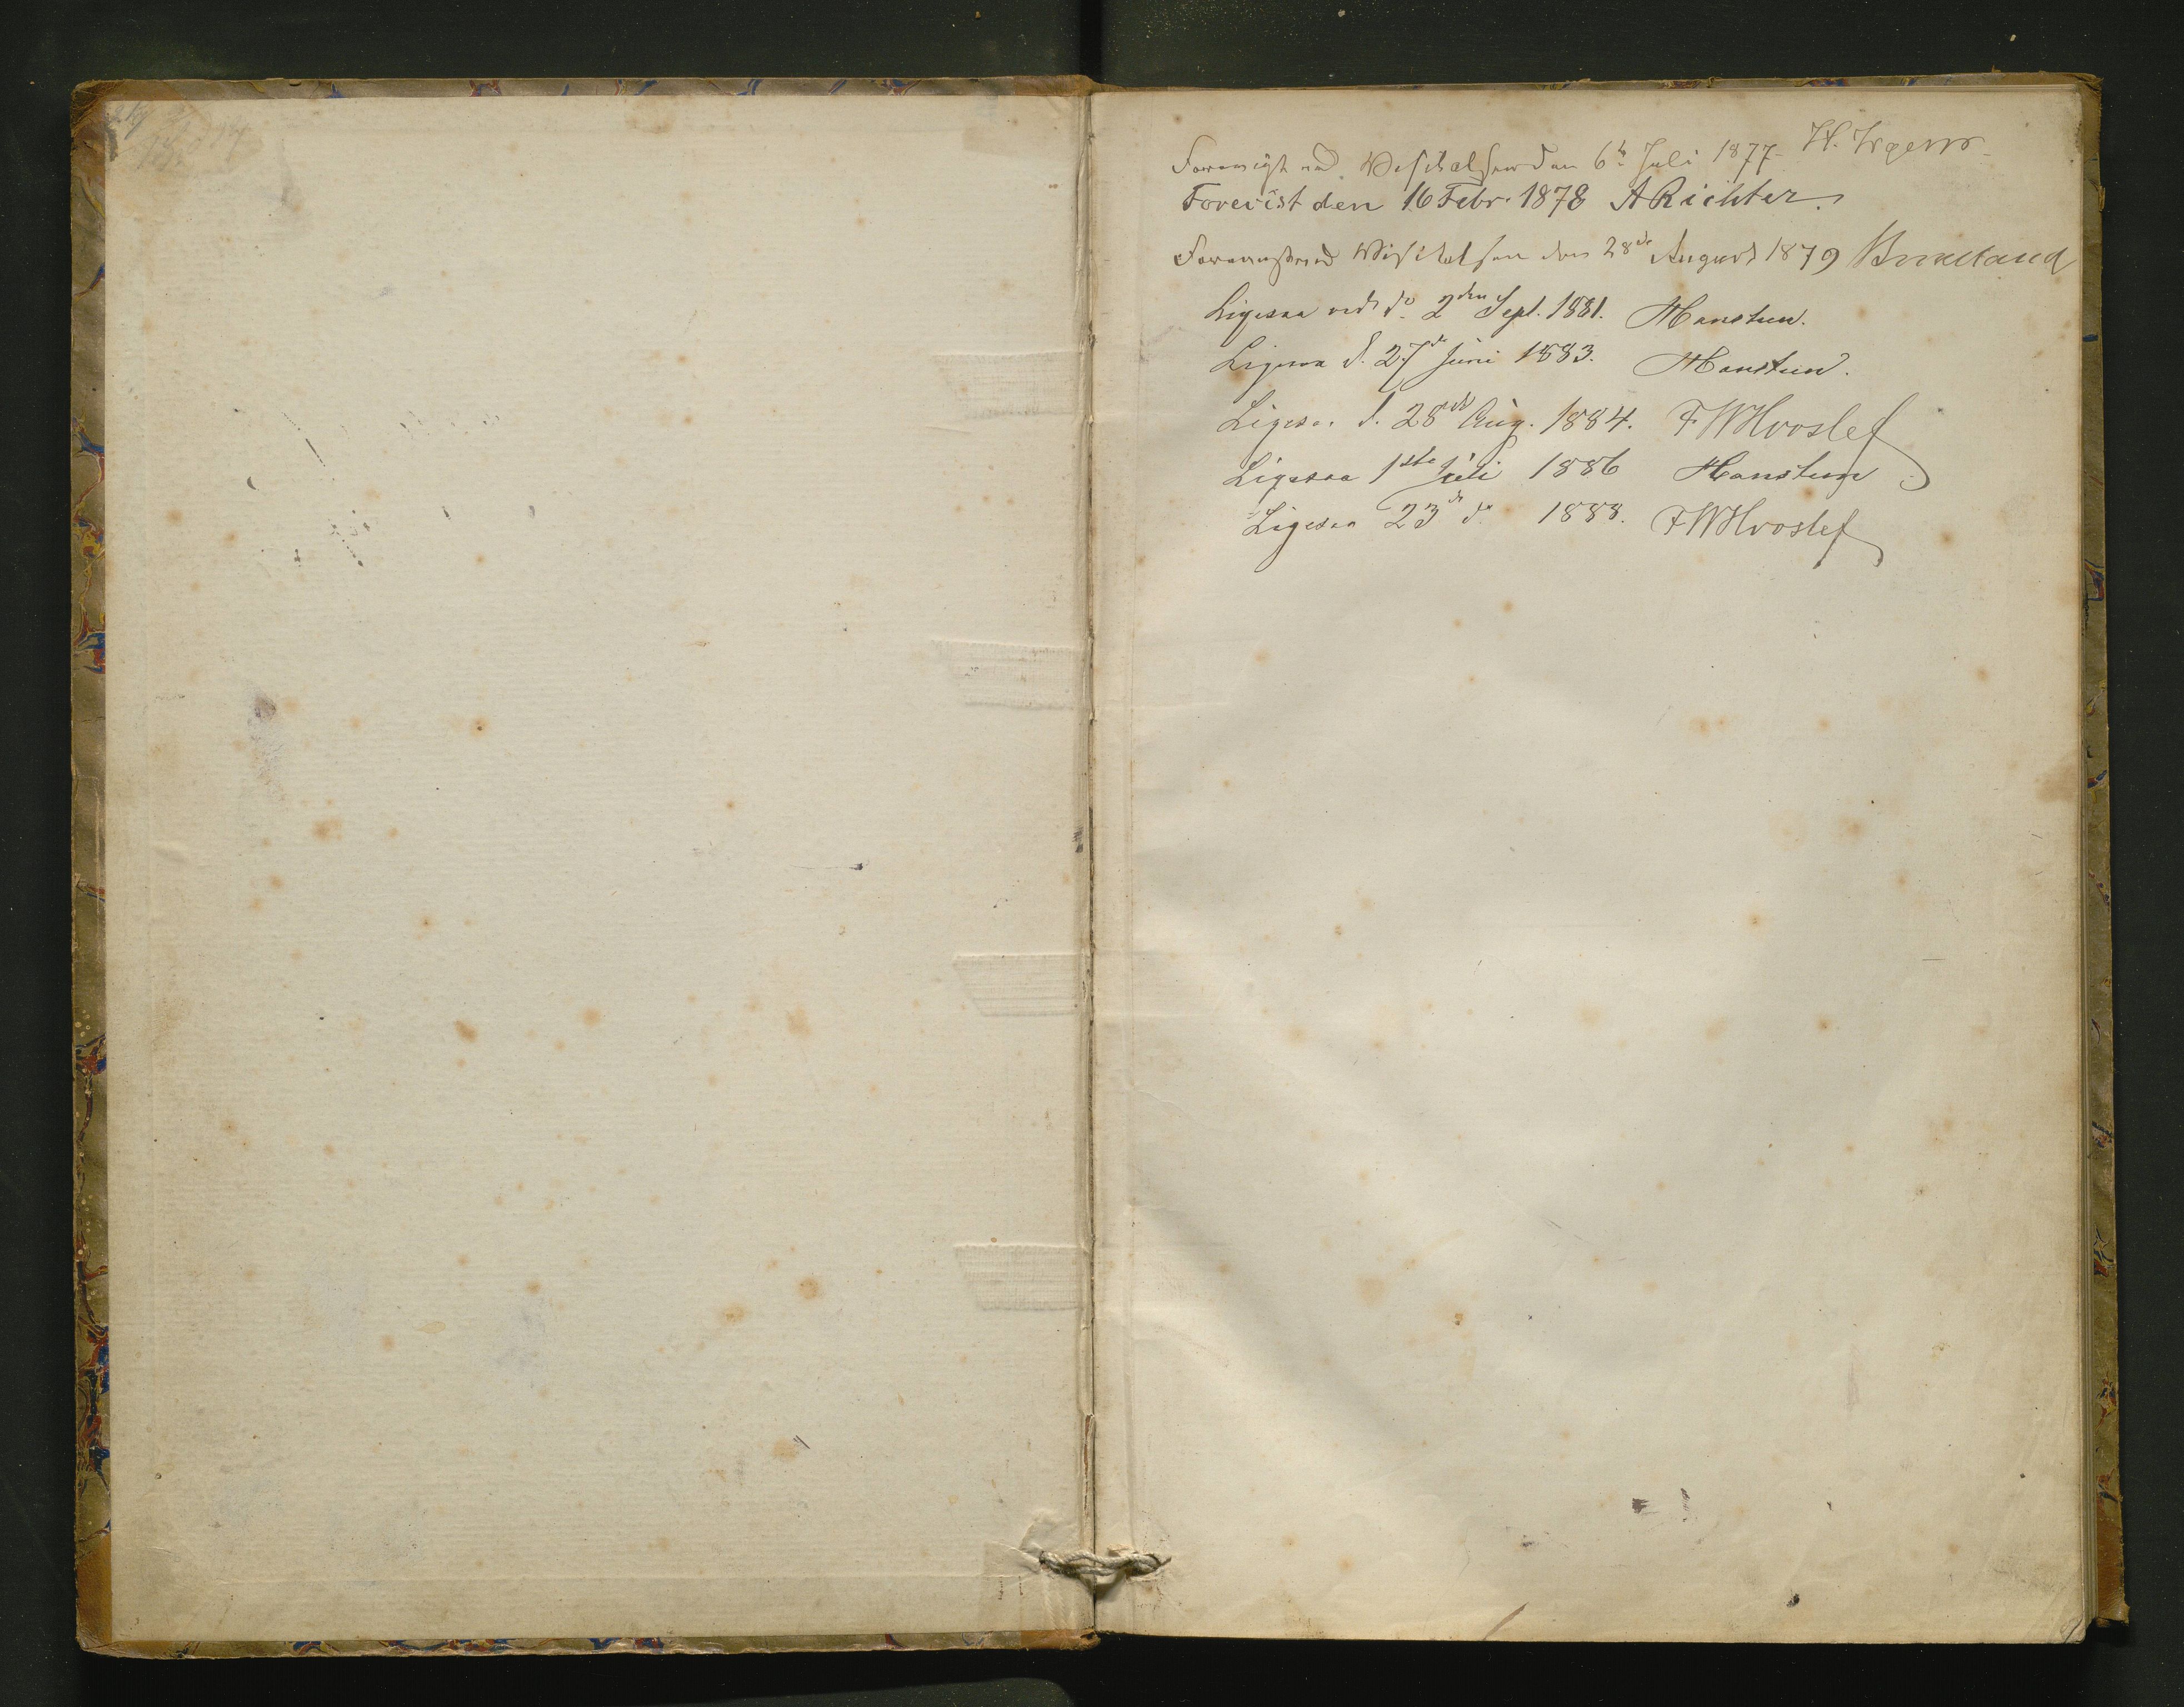 Forevist ved Visitatsen den 6te Juli 1877. 
Forevist den 16 Febr. 1878 A Richter.
Forevist ved Visitatsen den 28de August 1879
Ligesaa ved do. 2den Sept. 1881. Hanstun.
Ligesaa d. 27de Juni 1883. Hanstun.
Ligesaa d. 28de Aug. 1884. FWHvoslef
Ligesaa 1ste Juli 1886 Hanstun
Ligesaa 23de do. 1888. FWHvoslef